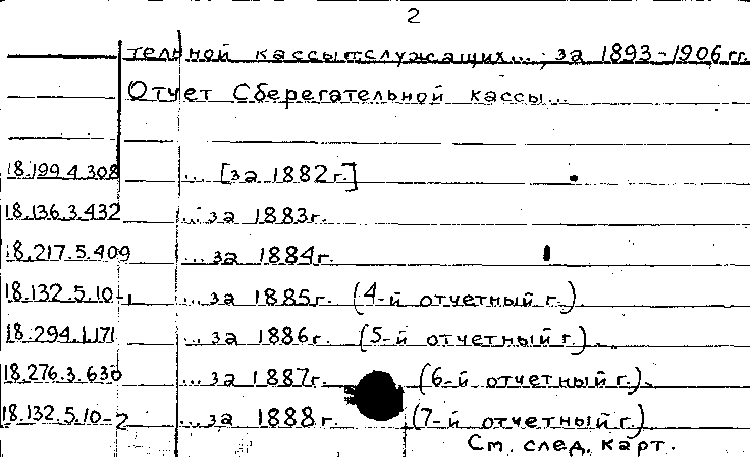 2
тельной кассы служащих...; за 1893-1906 гг.
Отчет Сберегательной кассы...
18.199.4.308 ... [за 1882 г.]
18.136.3.432 ... за 1883 г.
18.217.5.409 ... за 1884 г.
18.132.5.10-1 ... за 1885 г. (4-й отчетный г.)
18.294.1.171 ... за 1886 г. (5-й отчетный г.)
18.276.3.630 ... за 1887 г. (6-й отчетный г.)
18.132.5.10-2 ... за 1888 г. (7-й отчетный г.)
См. след. карт.